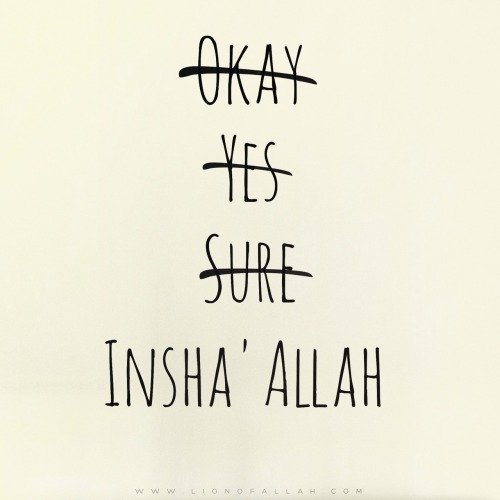 Okay
Yes
Sure
Insha'Allah
www.lionofallah.com